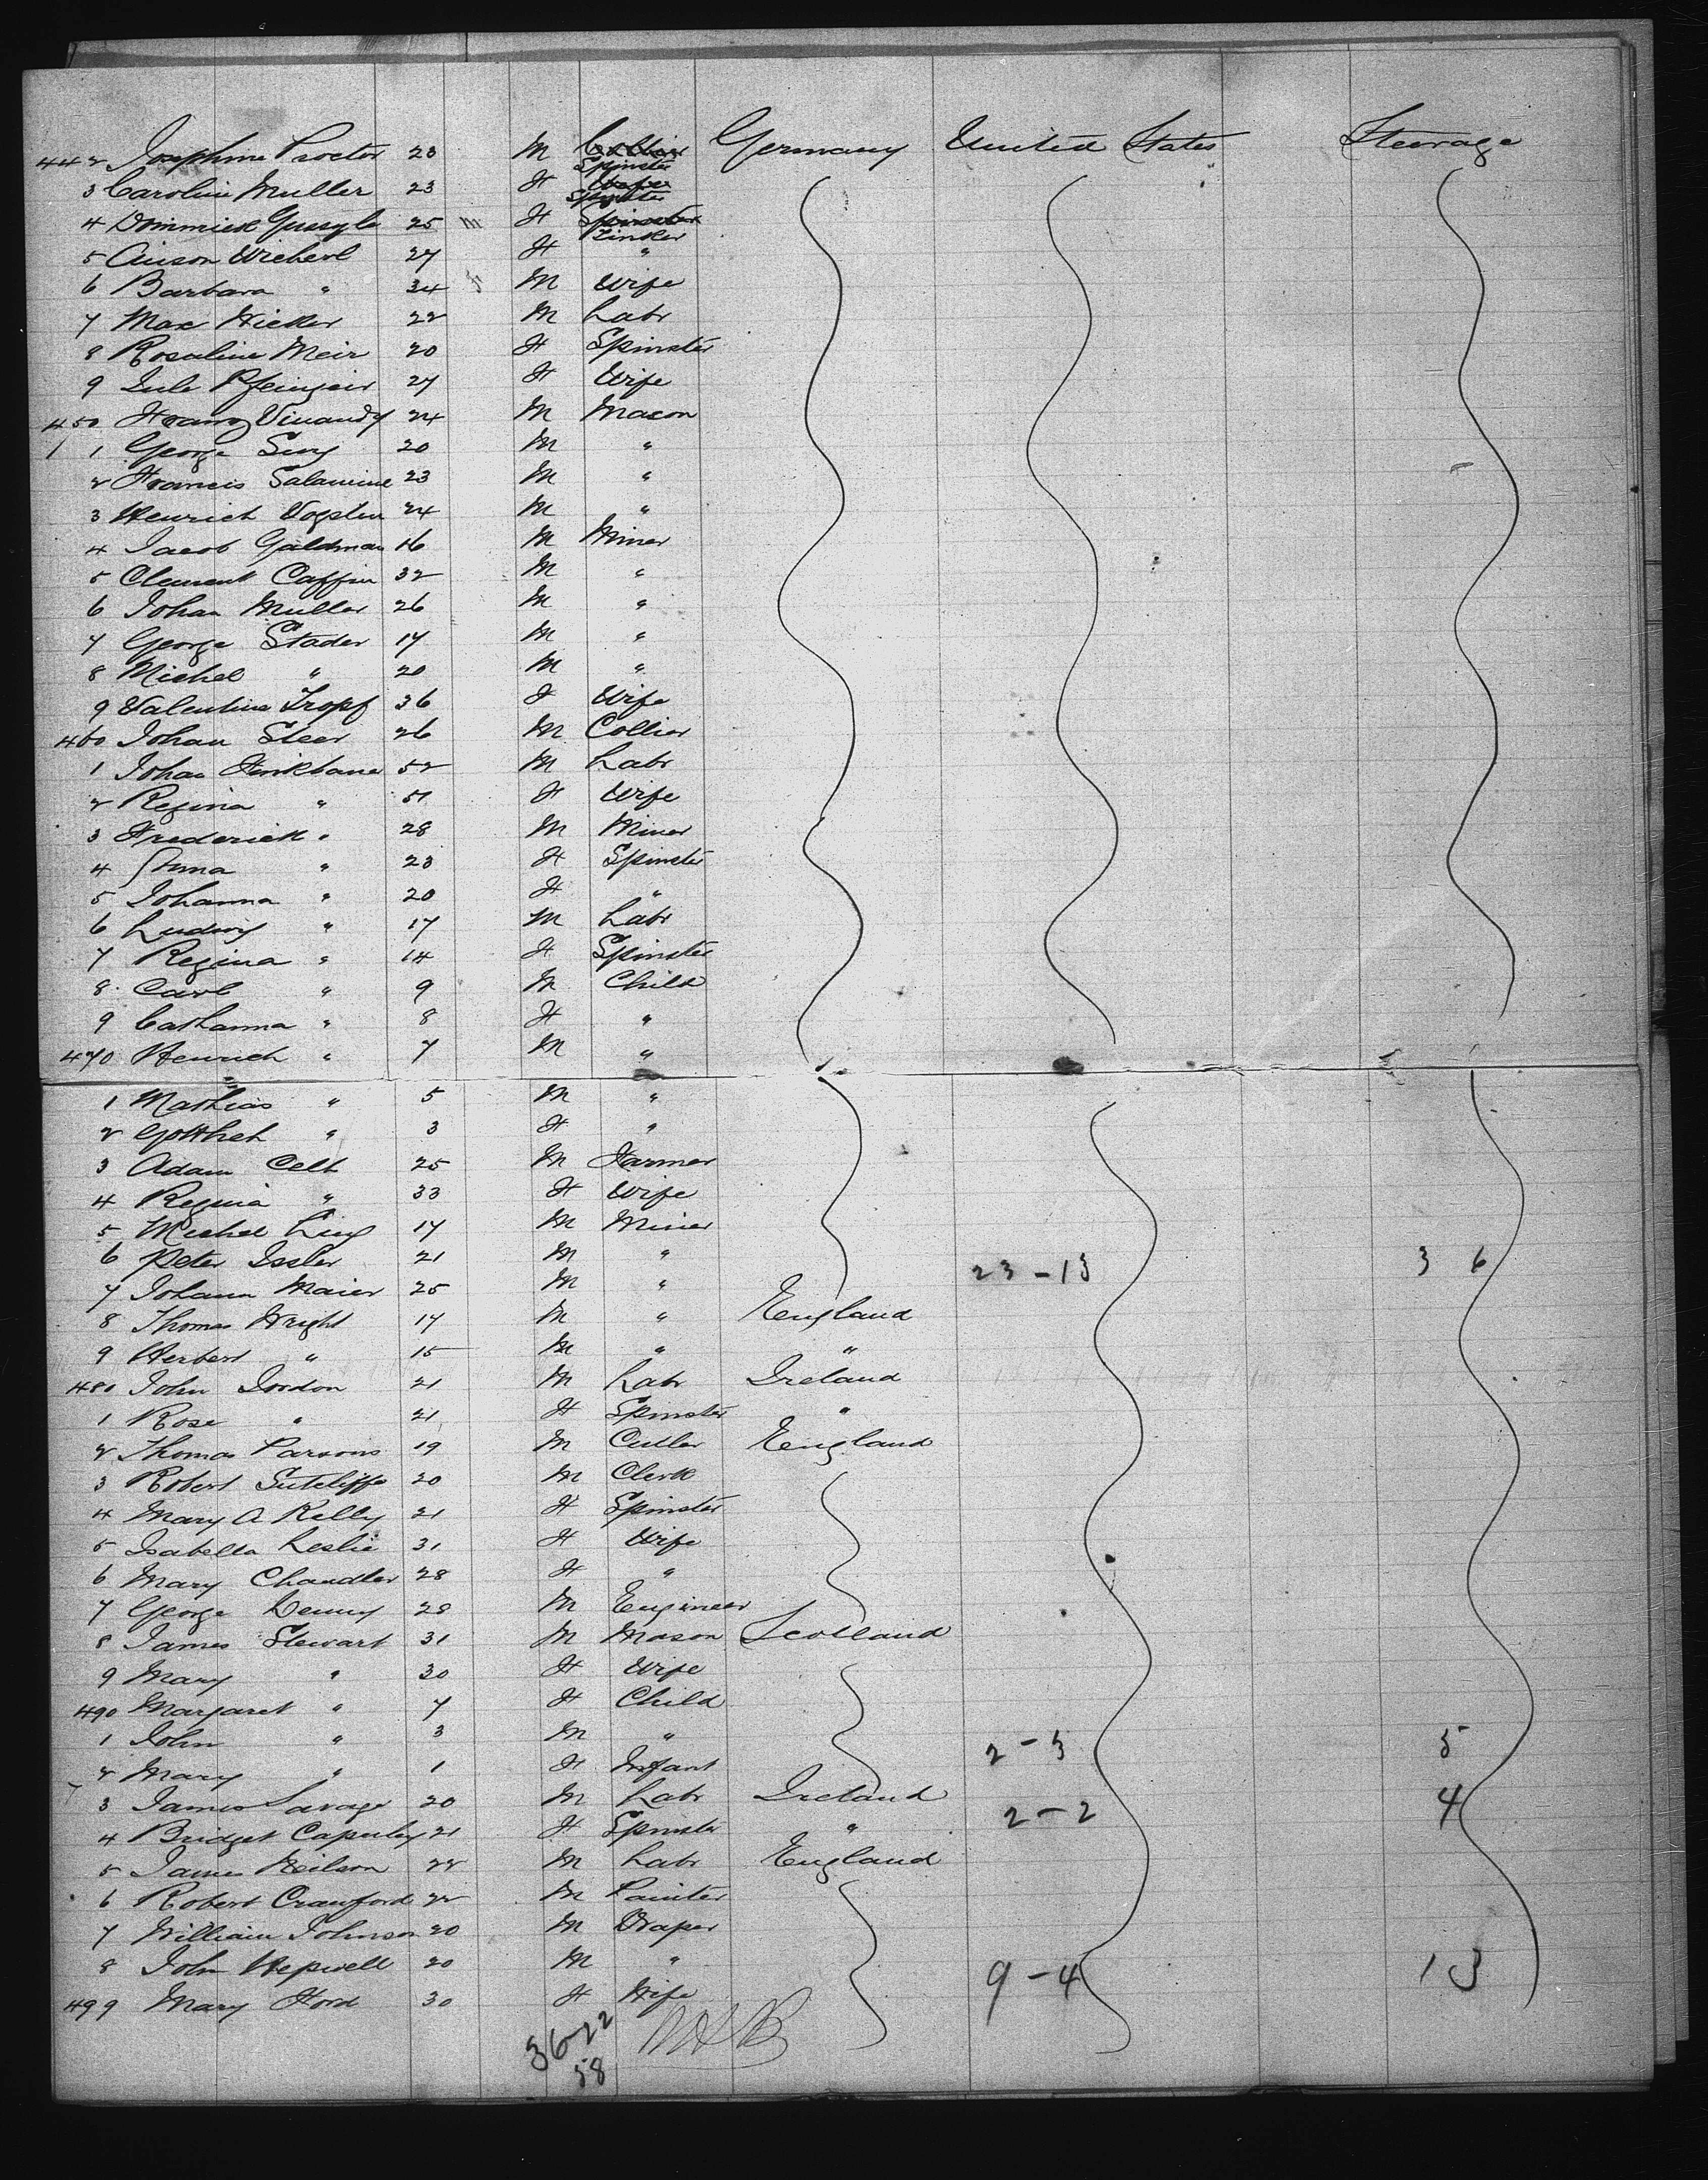 442 Josephine Proctor 23 M Collier Spinster Germany United States Steerage
3 Caroline Muller 23 F Spinster
4 Dominick 25 m F Spinster Tinker
5 27 F "
6 Barbara " 34 M Wife
7 Max Wicker 22 M Labr
8 Rosaline Meir 20 F Spinster
9 27 F Wife
450 24 M Mason
1 George 20 M "
2 Francis Salamine 23 M "
3 Henrich 24 M "
4 Jacob Galdman 16 M Miner
5 Clement Caffin 32 M "
6 Johan Muller 26 M "
7 George Stader 17 M "
8 Michel " 20 M "
9 Valentine Tropf 36 F Wife
460 Johan Steer 26 M Collier
1 Johan 52 M Labr
2 Regina " 51 F Wife
3 Frederick " 28 M Miner
4 Anna " 23 F Spinster
5 Johanna " 20 F "
6 Ludwig " 17 M Labr
7 Regina " 14 F Spinster
8 Carl " 9 M Child
9 Cathanna " 8 F "
470 Henrich " 7 M "
1 Mathias " 5 M "
2 " 3 F "
3 Adam Celt 25 M Farmer
4 Regina " 33 F Wife
5 Michel 17 M Miner
6 Peter Issler 21 M " 23-13 36
7 Johann Maier 25 M "
8 Thomas Wright 17 M " England
9 Herbert " 15 M " "
480 John Dordon 21 M Labr Ireland
1 Rose " 21 F Spinster "
2 Thomas Parsons 19 M Cutler England
3 Robert Sutcliffe 20 M Clerk
4 Mary A Kelly 21 F Spinster
5 Isabella Leslie 31 F Wife
6 Mary Chandler 28 F "
7 George Denny 28 M Engineer
8 James Stewart 31 M Mason Scotland
9 Mary " 30 F Wife
490 Margaret " 7 F Child
1 John " 3 M " 2-3 5
2 Mary " 1 F Infant
3 James Savage 20 M Labr Ireland 2-2 4
4 Bridget 21 F Spinster "
5 James Neilson 22 M Labr England
6 Robert Crawford 22 M Painter
7 William Johnson 20 M Draper
8 John Hepwell 20 M " 9-4 13
499 Mary Ford 30 F Wife
36-22
58